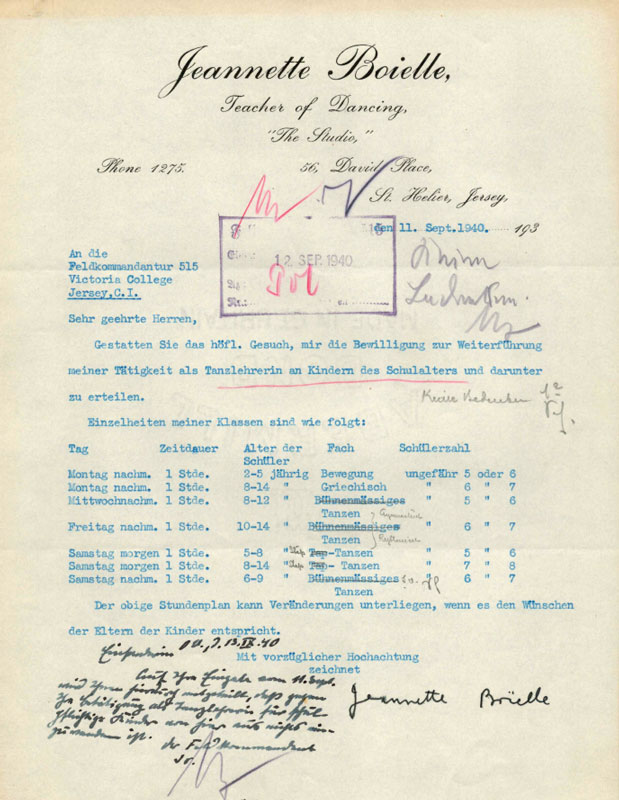 Jeannette Boielle,
Teacher of Dancing,
"The Studio,"
Phone 1275.
56, David Place,
St. Helier, Jersey,
den 11. Sept.1940. 193
12 SEP. 1940
Pol
An die
Feldkommandantur 515
Victoria College
Jersey,C.I.
Sehr geehrte Herren,
Gestatten Sie das höfl. Gesuch, mir die Bewilligung zur Weiterführung
meiner Tätigkeit als Tanzlehrerin an Kindern des Schulalters und darunter
zu erteilen.
Keine Bedenken
Einzelheiten meiner Klassen sind wie folgt:
Tag Zeitdauer Alter der Schüler Fach Schülerzahl
Montag nachm. 1 Stde. 2-5 jährig Bewegung ungefähr 5 oder 6
Montag nachm. 1 Stde. 8-14 " Griechisch " 6 " 7
Mittwochnachm. 1 Stde. 8-12 " Bühnenmässiges " 5 " 6
Tanzen
Freitag nachm. 1 Stde. 10-14 " Bühnenmässiges " 6 " 7
Tanzen
Samstag morgen 1 Stde. 5-8 " Tap-Tanzen " 5 " 6
Samstag morgen 1 Stde. 8-14 " Tap- Tanzen " 7 " 8
Samstag nachm. 1 Stde. 6-9 " Bühnenmässiges " 6 " 7
Tanzen
Der obige Stundenplan kann Veränderungen unterliegen, wenn es den Wünschen
der Eltern der Kinder entspricht.
Mit vorzüglicher Hochachtung
zeichnet
Jeannette Boielle
Auf Ihre Eingabe vom 11. Sept.
wird Ihnen hierdurch mitgeteilt, daß gegen
Ihre Betätigung als Tanzlehrerin für schul
pflichtige Kinder von hier aus nichts ein-
zuwenden ist.
Der Feldkommandant